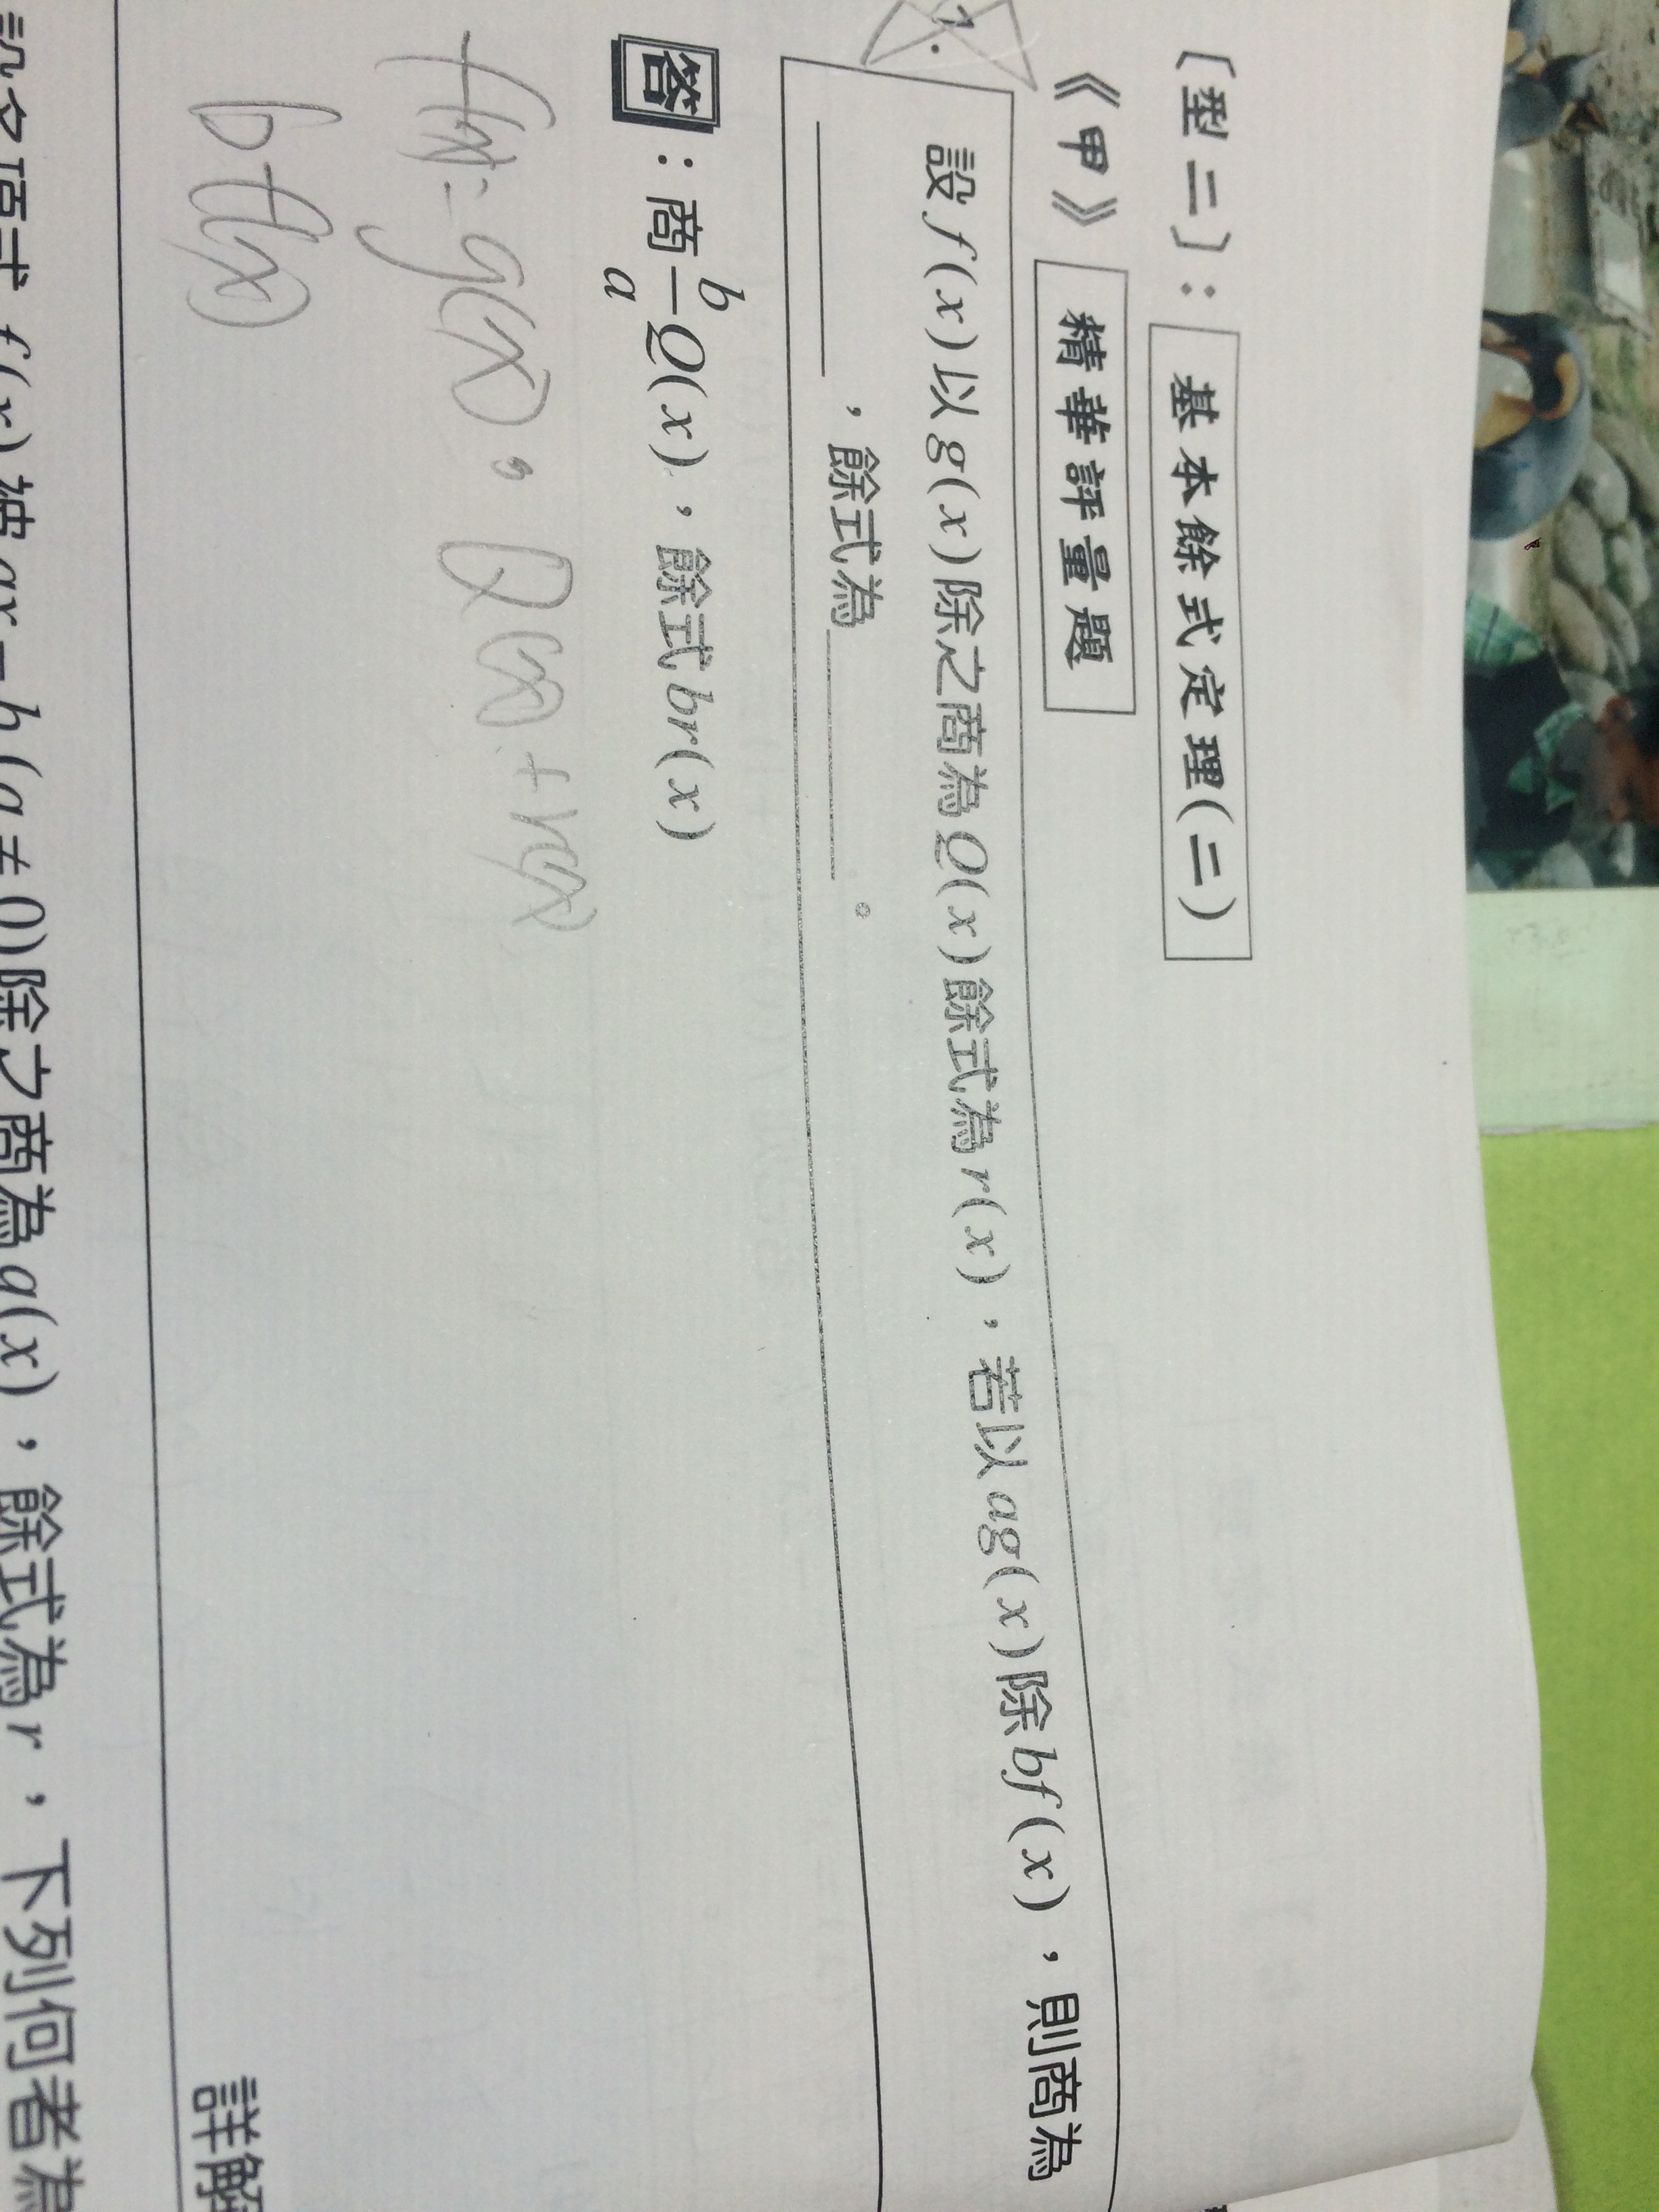 〔型二〕：基本餘式定理(二)
《甲》精華評量題
1.
設f(x)以g(x)除之商為Q(x)餘式為r(x)，若以ag(x)除bf(x)，則商為
＿＿＿＿＿，餘式為＿＿＿＿＿。
答：商b/a Q(x)，餘式br(x)
f(x)=g(x)·Q(x)+r(x)
bf(x)
詳解
設多項式f(x)被ax-b(a≠0)除之商為q(x)，餘式為r，下列何者為